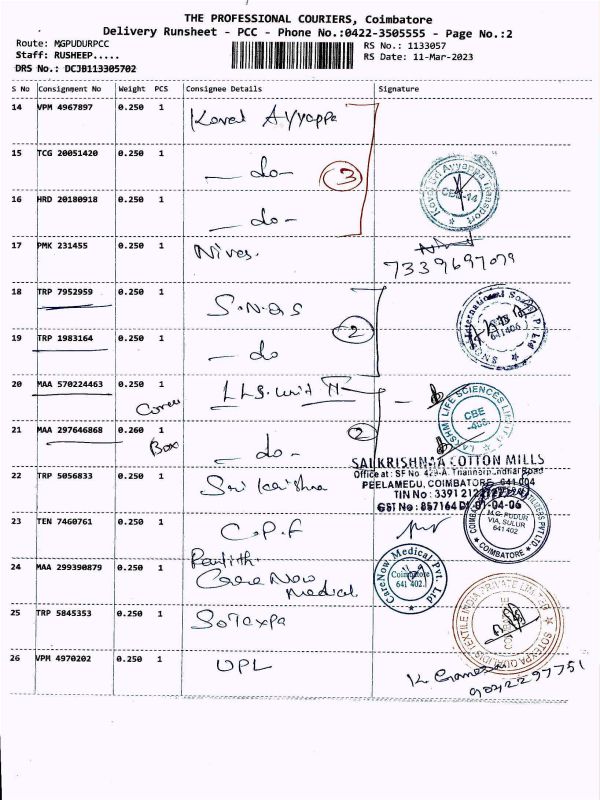 THE PROFESSIONAL COURIERS, Coimbatore
Delivery Runsheet - PCC - Phone No.:0422-3505555 - Page No.:2
Route: MGPUDURPCC
RS No.: 1133057
Staff: RUSHEEP.....
RS Date: 11-Mar-2023
DRS No.: DCJB113305702
S No Consignment No Weight PCS Consignee Details Signature
14 VPM 4967897 0.250 1 Koval Ayyappa
15 TCG 20051420 0.250 1 — do —
3
16 HRD 20180918 0.250 1 — do —
17 PMK 231455 0.250 1 Nives.
7339697079
18 TRP 7952959 0.250 1 S.N.Q.S
2
19 TRP 1983164 0.250 1 — do
20 MAA 570224463 0.250 1 LLS. Unit II
Cover
21 MAA 297646868 0.260 1 — do —
Box
2
LAKSHMI LIFE SCIENCES LIMITED
CBE
SAI KRISHNAA COTTON MILLS
Office at : SF No. 429-A,
PEELAMEDU, COIMBATORE - 641 004
TIN No : 3391212
GST No : 857164 Dt 01-04-06
22 TRP 5056833 0.250 1 Sri Krishna
23 TEN 7460761 0.250 1 C.P.F
M.G. PUDUR
VIA, SULUR
641 402
COIMBATORE
24 MAA 299390879 0.250 1 Care Now
Medical
CareNow Medical Pvt. Ltd
Coimbatore
641 402.
25 TRP 5845353 0.250 1 Sotexpa
SOTEXPA QUALIDIS TEXTILE INDIA PRIVATE LIMITED
26 VPM 4970202 0.250 1 UPL
K Ganesan
9042297751